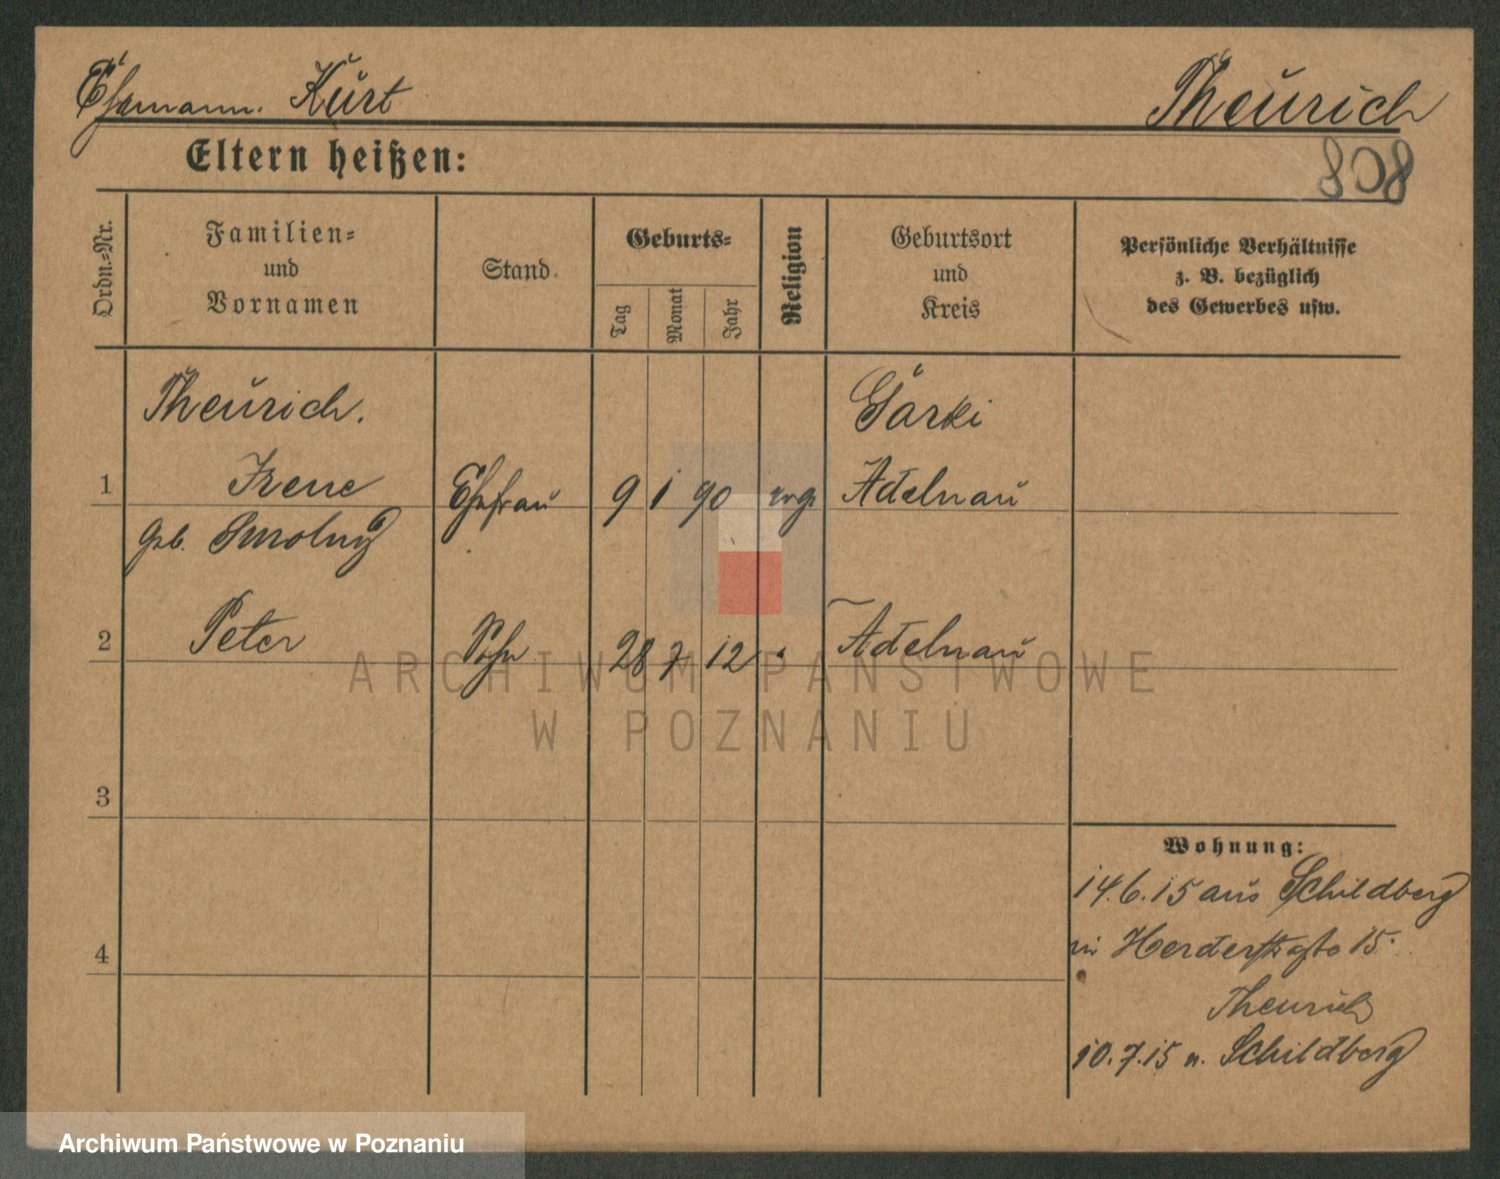 Ehemann. Kurt Theurich
Eltern heißen:
808
Ordn.-Nr.
Familien-
und
Vornamen
Stand.
Geburts-
Tag
Monat
Jahr
Religion
Geburtsort
und
Kreis
Persönliche Verhältnisse
z. B. bezüglich
des Gewerbes usw.
Theurich.
Gorki
1 Irene Ehefrau 9 1 90 evg. Adelnau
geb. Smolny
2 Peter Sohn 28 7 12 " Adelnau
ARCHIWUM PAŃSTWOWE
W POZNANIU
3
Wohnung:
14.6.15 aus Schildberg
in Herderstr 15.
4
Theurich
10.7.15 n. Schildberg
Archiwum Państwowe w Poznaniu